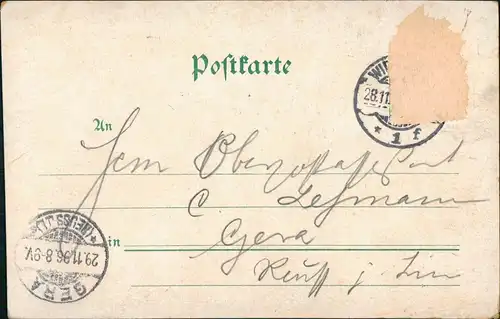 Postkarte
WI
28.11.
* 1 f
An
Herrn Oberpostassistent
C Lehmann
in Gera
Reuss j. Lin
GERA
29.11.96.8-9V.
* (REUSS J.L.) *